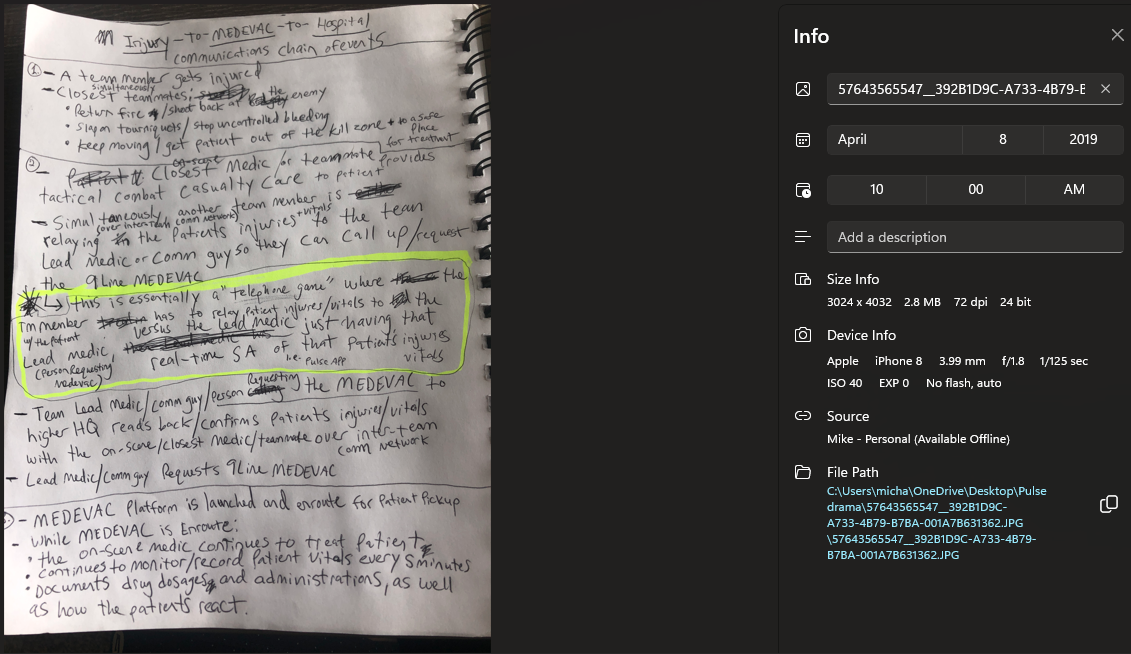 Injury-to-MEDEVAC-to-Hospital
communications chain of events
① - A team member gets injured
simultaneously
- Closest teammates; the
• Return fire /shoot back at enemy
• Slap on tourniquets / stop uncontrolled bleeding
• Keep moving / get patient out of the kill zone + to a safe
place
for treatment
② on-scene
- Closest Medic or teammate provides
tactical combat casualty care to patient
- Simultaneously, another team member is
(over inter-team comm network) + vitals
relaying the patients injuries to the team
Lead Medic or Comm guy so they can call up/request
the 9Line MEDEVAC
↳ this is essentially a "telephone game" where the
Tm member has to relay patient injures/vitals to the
w/the patient
Lead medic, versus the lead medic just having that
(person Requesting real-time SA of that patients injuries
Medevac) i.e. Pulse App vitals
Requesting
- Team Lead Medic/Comm guy/person the MEDEVAC to
higher HQ reads back/confirms patients injuries/vitals
with the on-scene/closest medic/teammate over inter-team
comm network
- Lead medic/Comm guy Requests 9Line MEDEVAC
- MEDEVAC Platform is launched and enroute for Patient Pickup
- While MEDEVAC is Enroute:
• the on-scene medic continues to treat Patient
• continues to monitor/record Patient Vitals every 5 minutes
• Documents drug dosages and administrations, as well
as how the patients react.
Info
57643565547__392B1D9C-A733-4B79-B
April 8 2019
10 00 AM
Add a description
Size Info
3024 x 4032 2.8 MB 72 dpi 24 bit
Device Info
Apple iPhone 8 3.99 mm f/1.8 1/125 sec
ISO 40 EXP 0 No flash, auto
Source
Mike - Personal (Available Offline)
File Path
C:\Users\micha\OneDrive\Desktop\Pulse
drama\57643565547__392B1D9C-
A733-4B79-B7BA-001A7B631362.JPG
\57643565547__392B1D9C-A733-4B79-
B7BA-001A7B631362.JPG